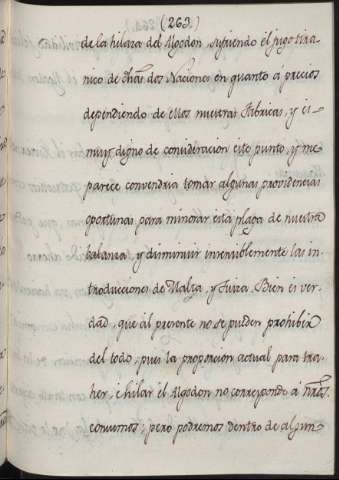 (263.)
de la hilaza del Algodon, sufriendo él jugo tira
nico de dhas dos Naciones en quanto á precios
dependiendo de ellos nuestras Fábricas, y és
muy digno de consideracion este punto, y me
parece convendria tomar algunas providencias
oportunas para minorar esta plaga de nuestra
balanza, y disminuir insensiblemente las in-
troducciones de Malta, y Suiza. Bien és ver-
dad, que ál presente no se pueden prohibir
del todo, pues la proporcion actual para tra-
her, é hilar él Algodon no corresponde á nros.
consumos; pero podremos dentro de algun